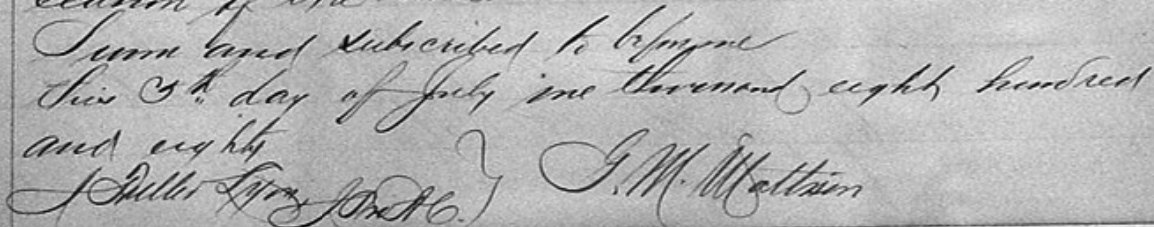 Sworn and subscribed to before me
this 5th day of July one thousand eight hundred
and eighty
J Fuller Lyon
G. M. Mattison